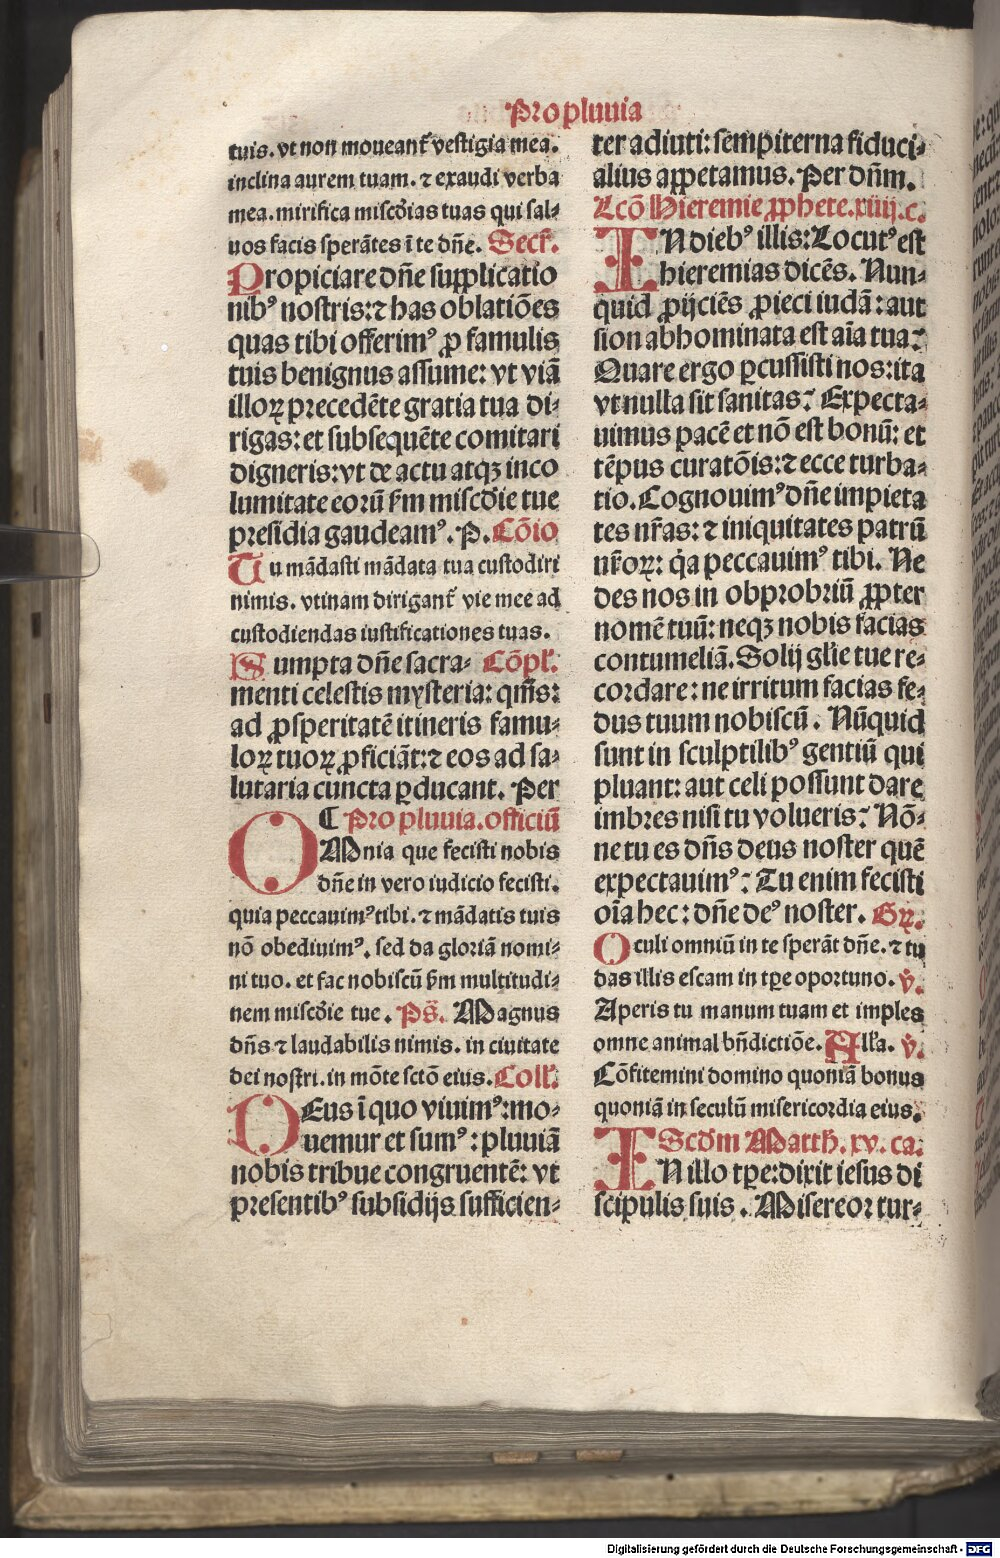 Pro pluuia
tuis. vt non moueant᷑ vestigia mea.
inclina aurem tuam. ⁊ exaudi verba
mea. mirifica misc̄dias tuas qui sal⸗
uos facis sperātes ī te dn̄e. Secr̄.
Propiciare dn̄e supplicatio
nibꝰ nostris: ⁊ has oblatiōes
quas tibi offerimꝰ ꝓ famulis
tuis benignus assume: vt viā
illoꝝ precedēte gratia tua di⸗
rigas: et subsequēte comitari
digneris: vt de actu atqꝫ inco
lumitate eorū ẜm misc̄die tue
presidia gaudeamꝰ. P. Cōio
Tu mādasti mādata tua custodiri
nimis. vtinam dirigant᷑ vie mee ad
custodiendas iustificationes tuas.
Sumpta dn̄e sacra⸗ Cōpl̄.
menti celestis mysteria: qm̄s:
ad ꝓsperitatē itineris famu⸗
loꝝ tuoꝝ ꝓficiāt: ⁊ eos ad sa⸗
lutaria cuncta ꝑducant. Per
¶ Pro pluuia. officiū
OMnia que fecisti nobis
dn̄e in vero iudicio fecisti.
quia peccauimꝰ tibi. ⁊ mādatis tuis
nō obediuimꝰ. sed da gloriā nomi⸗
ni tuo. et fac nobiscū ẜm multitudi⸗
nem misc̄die tue. Ps̄. Magnus
dn̄s ⁊ laudabilis nimis. in ciuitate
dei nostri. in mōte sctō eius. Coll̄.
DEus ī quo viuimꝰ: mo⸗
uemur et sumꝰ: pluuiā
nobis tribue congruentē: vt
presentibꝰ subsidijs sufficien⸗
ter adiuti: sempiterna fiduci⸗
alius appetamus. Per dn̄m.
Lcō Hieremie ꝓphete. xiiij. c.
IN diebꝰ illis: Locutꝰ est
hieremias dicēs. Nun⸗
quid ꝓijciēs ꝓieci iudā: aut
sion abhominata est aīa tua?
Quare ergo ꝑcussisti nos: ita
vt nulla sit sanitas? Expecta⸗
uimus pacē et nō est bonū: et
tēpus curatōis: ⁊ ecce turba⸗
tio. Cognouimꝰ dn̄e impieta
tes nr̄as: ⁊ iniquitates patrū
nr̄oꝝ: q̇a peccauimꝰ tibi. Ne
des nos in obprobriū ꝓpter
nomē tuū: neqꝫ nobis facias
contumeliā. Solij gl̄ie tue re⸗
cordare: ne irritum facias fe⸗
dus tuum nobiscū. Nūquid
sunt in sculptilibꝰ gentiū qui
pluant: aut celi possunt dare
imbres nisi tu volueris? Nō⸗
ne tu es dn̄s deus noster quē
expectauimꝰ? Tu enim fecisti
oīa hec: dn̄e deꝰ noster. Gꝝ.
Oculi omniū in te sperāt dn̄e. ⁊ tu
das illis escam in tꝑe oportuno. v̄.
Aperis tu manum tuam et imples
omne animal bn̄dictiōe. All̄a. v̄.
Cōfitemini domino quoniā bonus
quoniā in seculū misericordia eius.
Scd̄m Matth. xv. ca.
IN illo tꝑe: dixit iesus di
scipulis suis. Misereor tur⸗
Digitalisierung gefördert durch die Deutsche Forschungsgemeinschaft - DFG